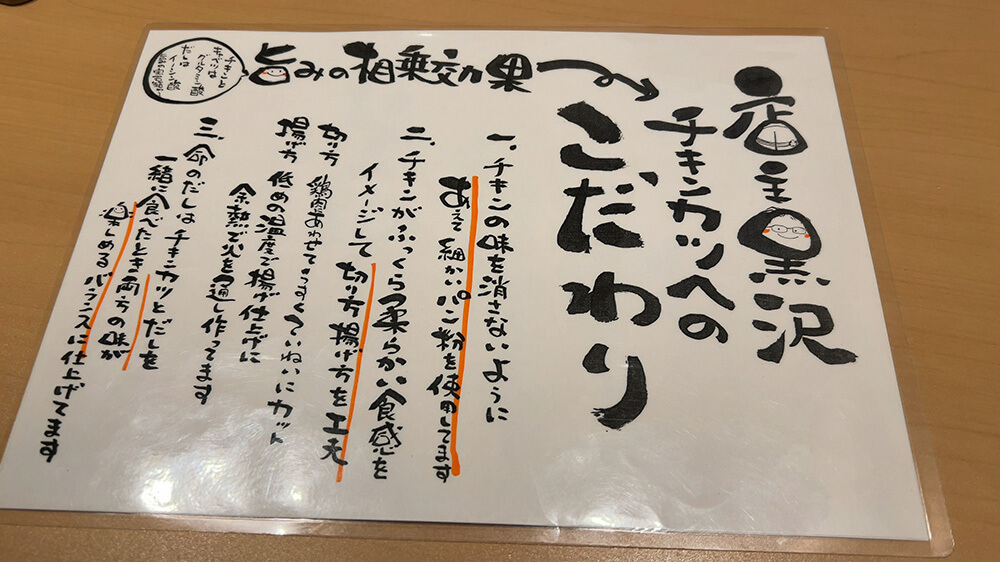 店主黒沢
チキンカツへの
こだわり
旨みの相乗効果
チキンと
キャベツは
グルタミン酸
だしは
イノシン酸
一、チキンの味を消さないように
あえて細かいパン粉を使用してます
二、チキンがふっくら柔らかい食感を
イメージして切り方揚げ方を工夫
切り方 鶏肉あわせてうすくていねいにカット
揚げ方 低めの温度で揚げ仕上げに
余熱で火を通し作ってます
三、命のだしはチキンカツとだしを
一緒に食べたとき両方の味が
楽しめるバランスに仕上げてます